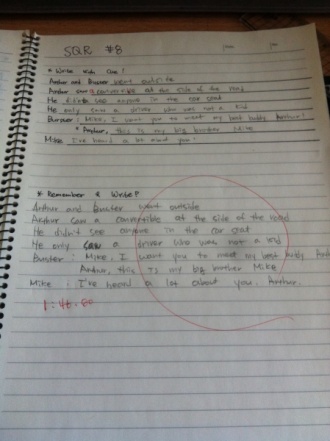 SQR #8
* Write with Cue!
Arthur and Buster went outside
Arthur saw a convertible at the side of the road
He didn't see anyone in the car seat
He only saw a driver who was not a kid
Buster: Mike, I want you to meet my best buddy Arthur!
* Arthur, this is my big brother Mike
Mike I've heard a lot about you!
* Remember & Write!
Arthur and Buster went outside
Arthur saw a convertible at the side of the road
He didn't see anyone in the car seat
He only saw a driver who was not a kid
Buster : Mike, I want you to meet my best buddy
Arthur, this is my big brother Mike
Mike : I've heard a lot about you, Arthur.
1:46.80